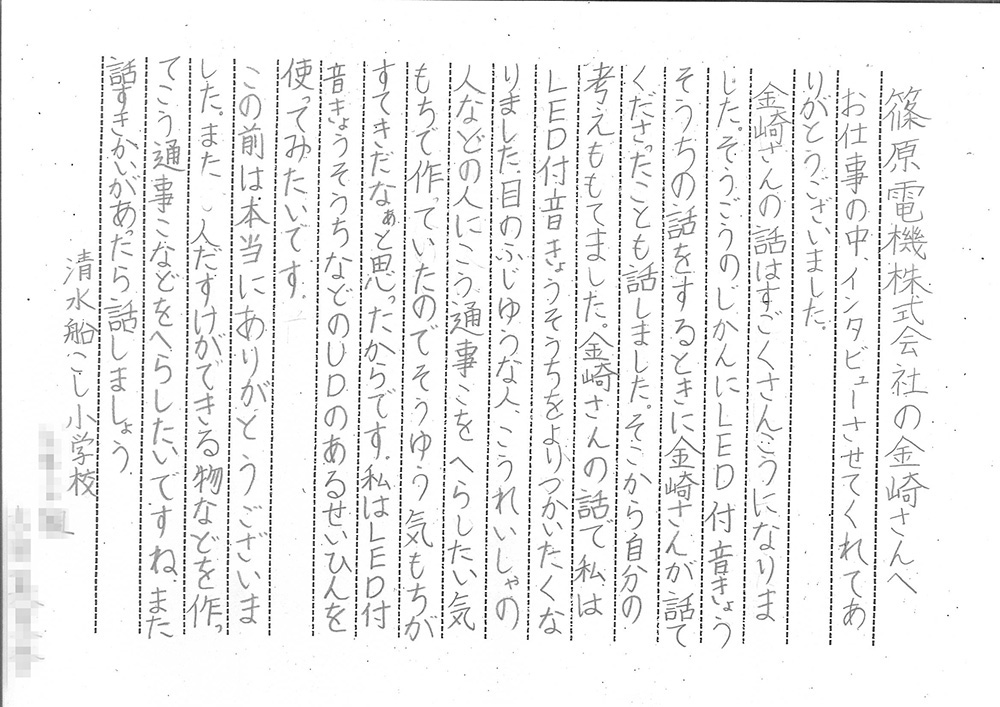 篠原電機株式会社の金崎さんへ
お仕事の中、インタビューさせてくれてあ
りがとうございました。
金崎さんの話はすごくさんこうになりま
した。そうごうのじかんにLED付音きょう
そうちの話をするときに金崎さんが話て
くださったことも話しました。そこから自分の
考えももてました。金崎さんの話で私は
LED付音きょうそうちをよりつかいたくな
りました。目のふじゆうな人、こうれいしゃの
人などの人にこう通事こをへらしたい気
もちで作っていたのでそうゆう気もちが
すてきだなぁと思ったからです。私はLED付
音きょうそうちなどのUDのあるせいひんを
使ってみたいです。
この前は本当にありがとうございま
した。また、人だすけができる物などを作っ
てこう通事こなどをへらしたいですね。また
話すきかいがあったら話しましょう。
清水船こし小学校